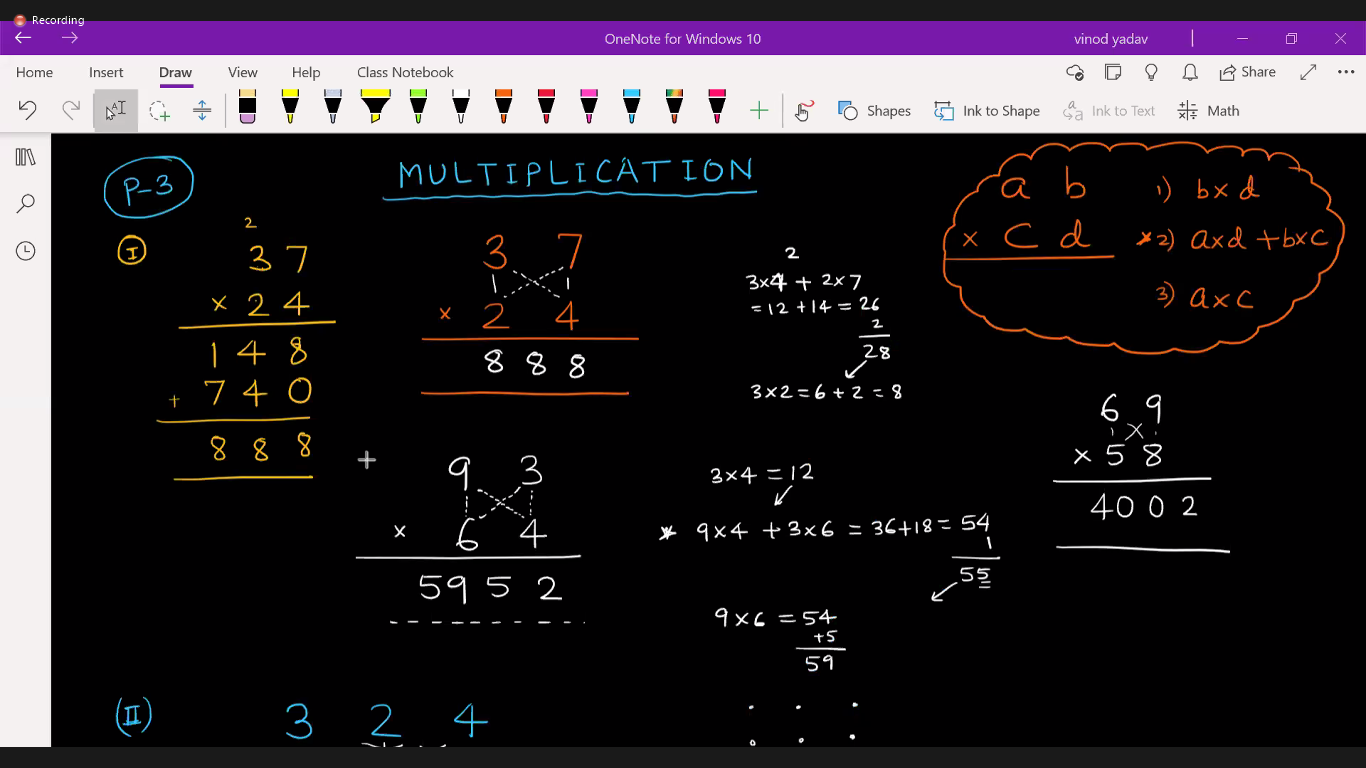 Recording
OneNote for Windows 10
vinod yadav
Home Insert Draw View Help Class Notebook
Share
Shapes Ink to Shape Ink to Text Math
P-3
MULTIPLICATION
I
2
3 7
× 2 4
1 4 8
+ 7 4 0
8 8 8
3 7
× 2 4
8 8 8
2
3×4 + 2×7
= 12 + 14 = 26
2
28
3×2 = 6 + 2 = 8
a b
× c d
1) b×d
*2) a×d + b×c
3) a×c
9 3
× 6 4
59 5 2
3×4 = 12
* 9×4 + 3×6 = 36+18 = 54
1
55
9×6 = 54
+5
59
6 9
× 5 8
40 0 2
(II)
3 2 4